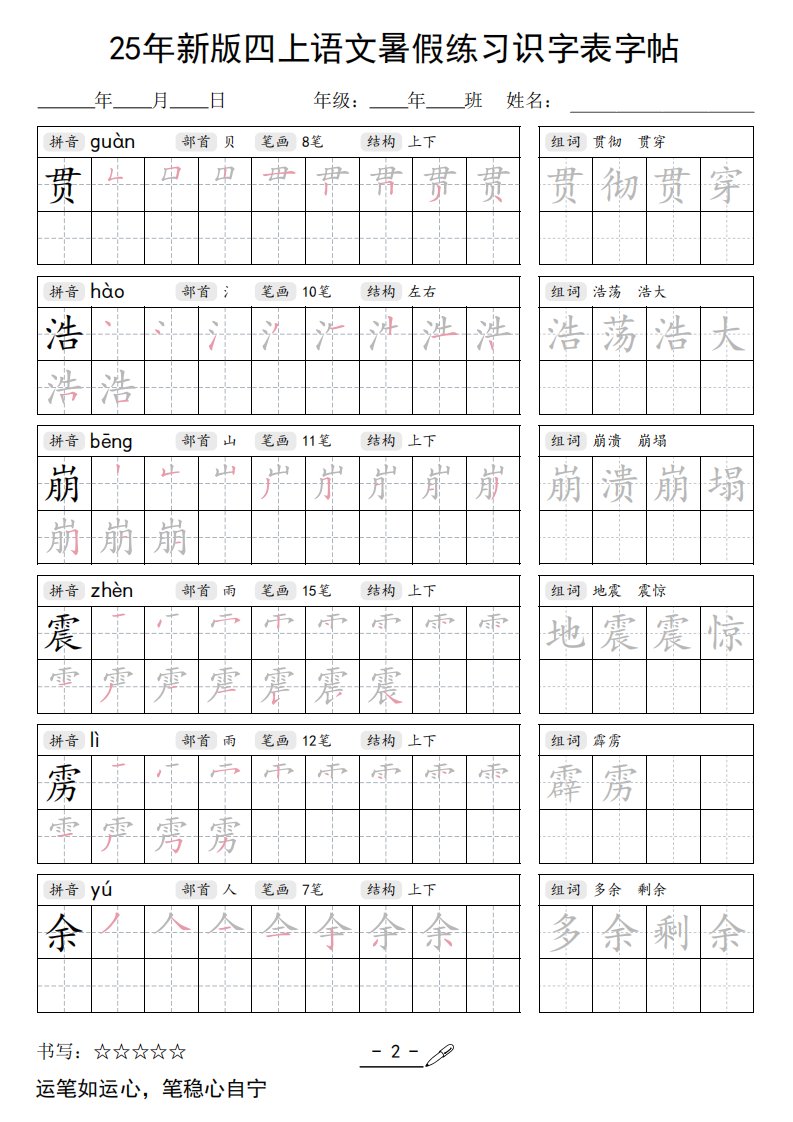 25年新版四上语文暑假练习识字表字帖
______年____月____日 年级：____年____班 姓名：____________________
拼音 guàn 部首 贝 笔画 8笔 结构 上下 组词 贯彻 贯穿
贯 贯彻贯穿
拼音 hào 部首 氵 笔画 10笔 结构 左右 组词 浩荡 浩大
浩 浩荡浩大
浩浩
拼音 bēng 部首 山 笔画 11笔 结构 上下 组词 崩溃 崩塌
崩 崩溃崩塌
崩崩崩
拼音 zhèn 部首 雨 笔画 15笔 结构 上下 组词 地震 震惊
震 地震震惊
拼音 lì 部首 雨 笔画 12笔 结构 上下 组词 霹雳
雳 霹雳
拼音 yú 部首 人 笔画 7笔 结构 上下 组词 多余 剩余
余 多余剩余
书写：☆☆☆☆☆ - 2 -
运笔如运心，笔稳心自宁